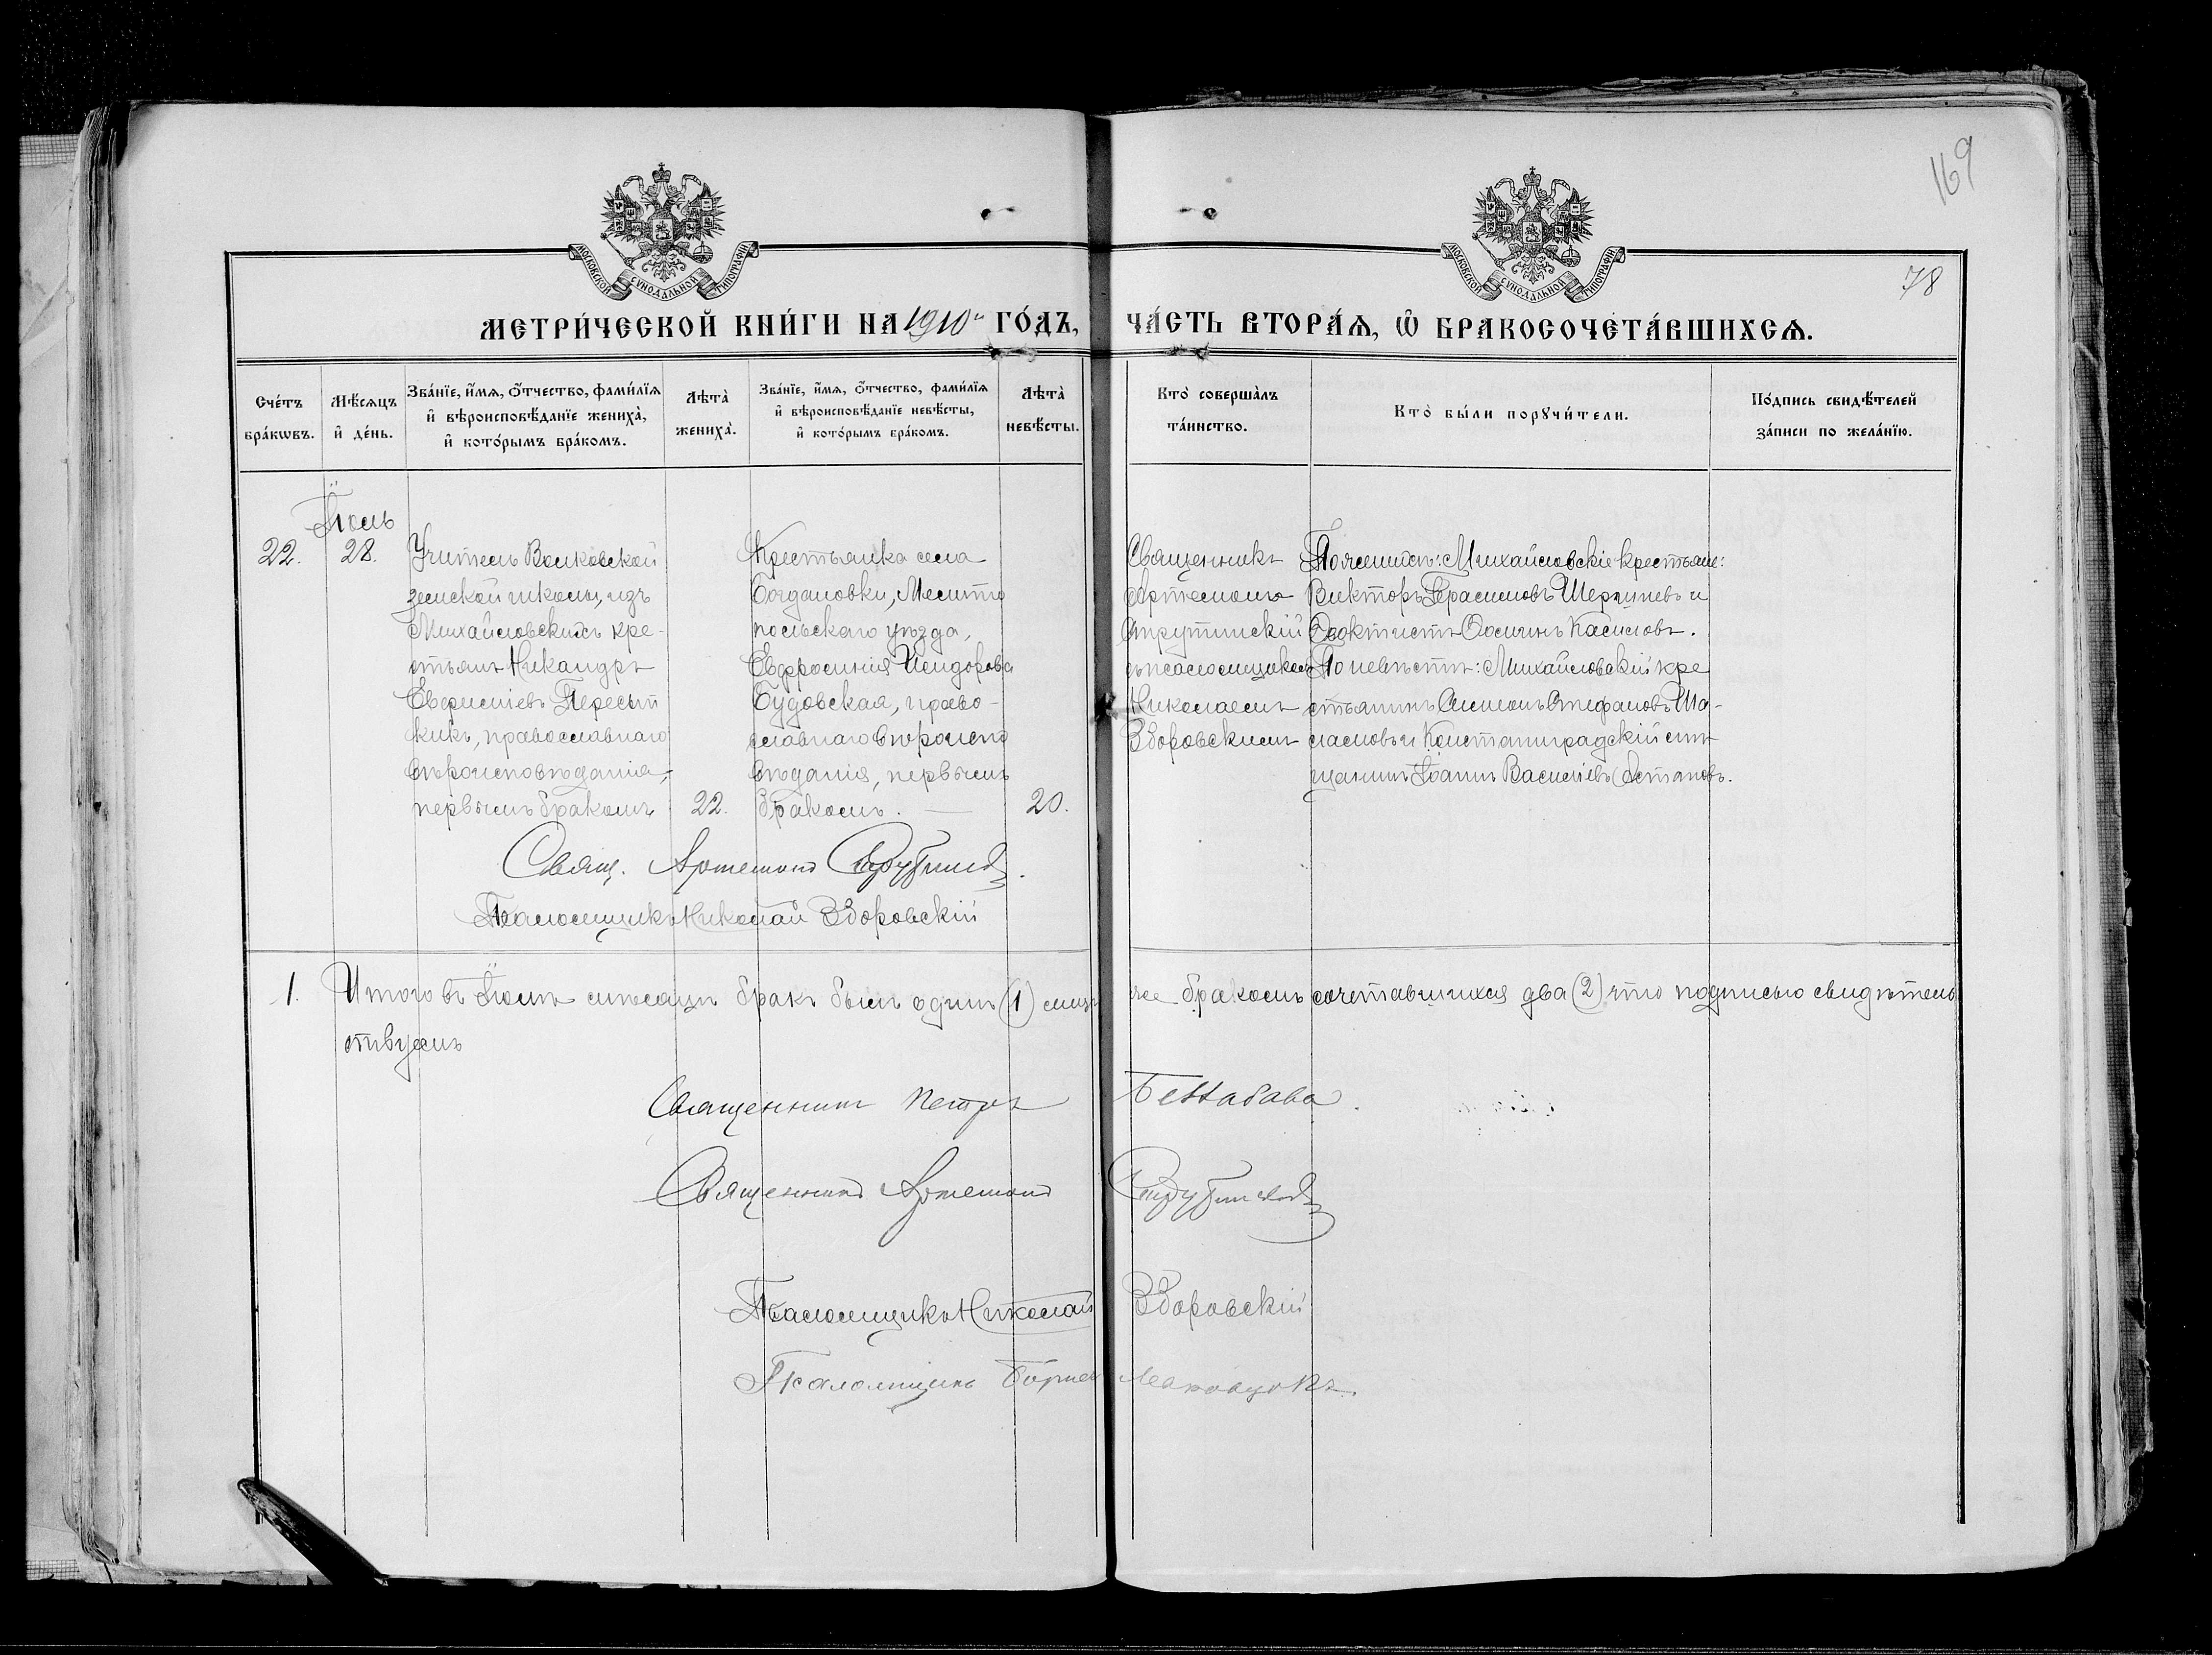 169
78
МОСКОВСКОЙ СѴНОДАЛЬНОЙ ТИПОГРАФІИ
МОСКОВСКОЙ СѴНОДАЛЬНОЙ ТИПОГРАФІИ
МЕТРИ́ЧЕСКОЙ КНИ́ГИ НА 1910й ГО́ДЪ, ЧА́СТЬ ВТОРА́Ѧ, Ѽ БРАКОСОЧЕТА́ВШИХСѦ.
Сче́тъ бра́кѡвъ.
Мѣ́сѧцъ и҆ де́нь.
Зва́нїе, и҆́мѧ, ѻ҆́тчество, фами́лїѧ
и҆ вѣроисповѣ́данїе жениха̀,
и҆ кото́рымъ бра́комъ.
Лѣта̀ жениха̀.
Зва́нїе, и҆́мѧ, ѻ҆́тчество, фами́лїѧ
и҆ вѣроисповѣ́данїе невѣ́сты,
и҆ кото́рымъ бра́комъ.
Лѣта̀ невѣ́сты.
Кто̀ соверша̀лъ та́инство.
Кто̀ бы́ли порꙋчи́тели.
По́дпись свидѣ́телей за́писи по жела́нїю.
Іюль
22.
28.
Учитель Волковской
земской школы, изъ
Михайловскихъ кре-
стьянъ Никандръ
Евфиміевъ
православнаго
вѣроисповѣданія,
первымъ бракомъ
22.
Крестьянка села
Богдановки, Мелито
польскаго уѣзда,
Евфросинія Исидорова
Будовская, право-
славнаго вѣроиспо
вѣданія, первымъ
бракомъ. —
20.
Священникъ
Артемонъ
Струтинскій
съ псаломщикомъ
Николаемъ
Зборовскимъ
По женихѣ: Михайловскіе крестьяне:
Викторъ Герасимовъ и
Ѳеоктистъ
По невѣстѣ: Михайловскій кре
стьянинъ Симеонъ Стефановъ Ша-
и Константиградскій мѣ
щанинъ Іоаннъ Васильевъ
Свящ. Артемонъ Струтинскій.
Псаломщикъ Николай Зборовскій
1.
Итого въ Іюлѣ мѣсяцѣ бракъ былъ одинъ (1) лицъ же бракомъ сочетавшихся два (2) что подписью свидѣтель
ствуемъ
Священникъ Петръ
Священникъ Артемонъ Струтинскій
Псаломщикъ Николай Зборовскій
Псаломщикъ